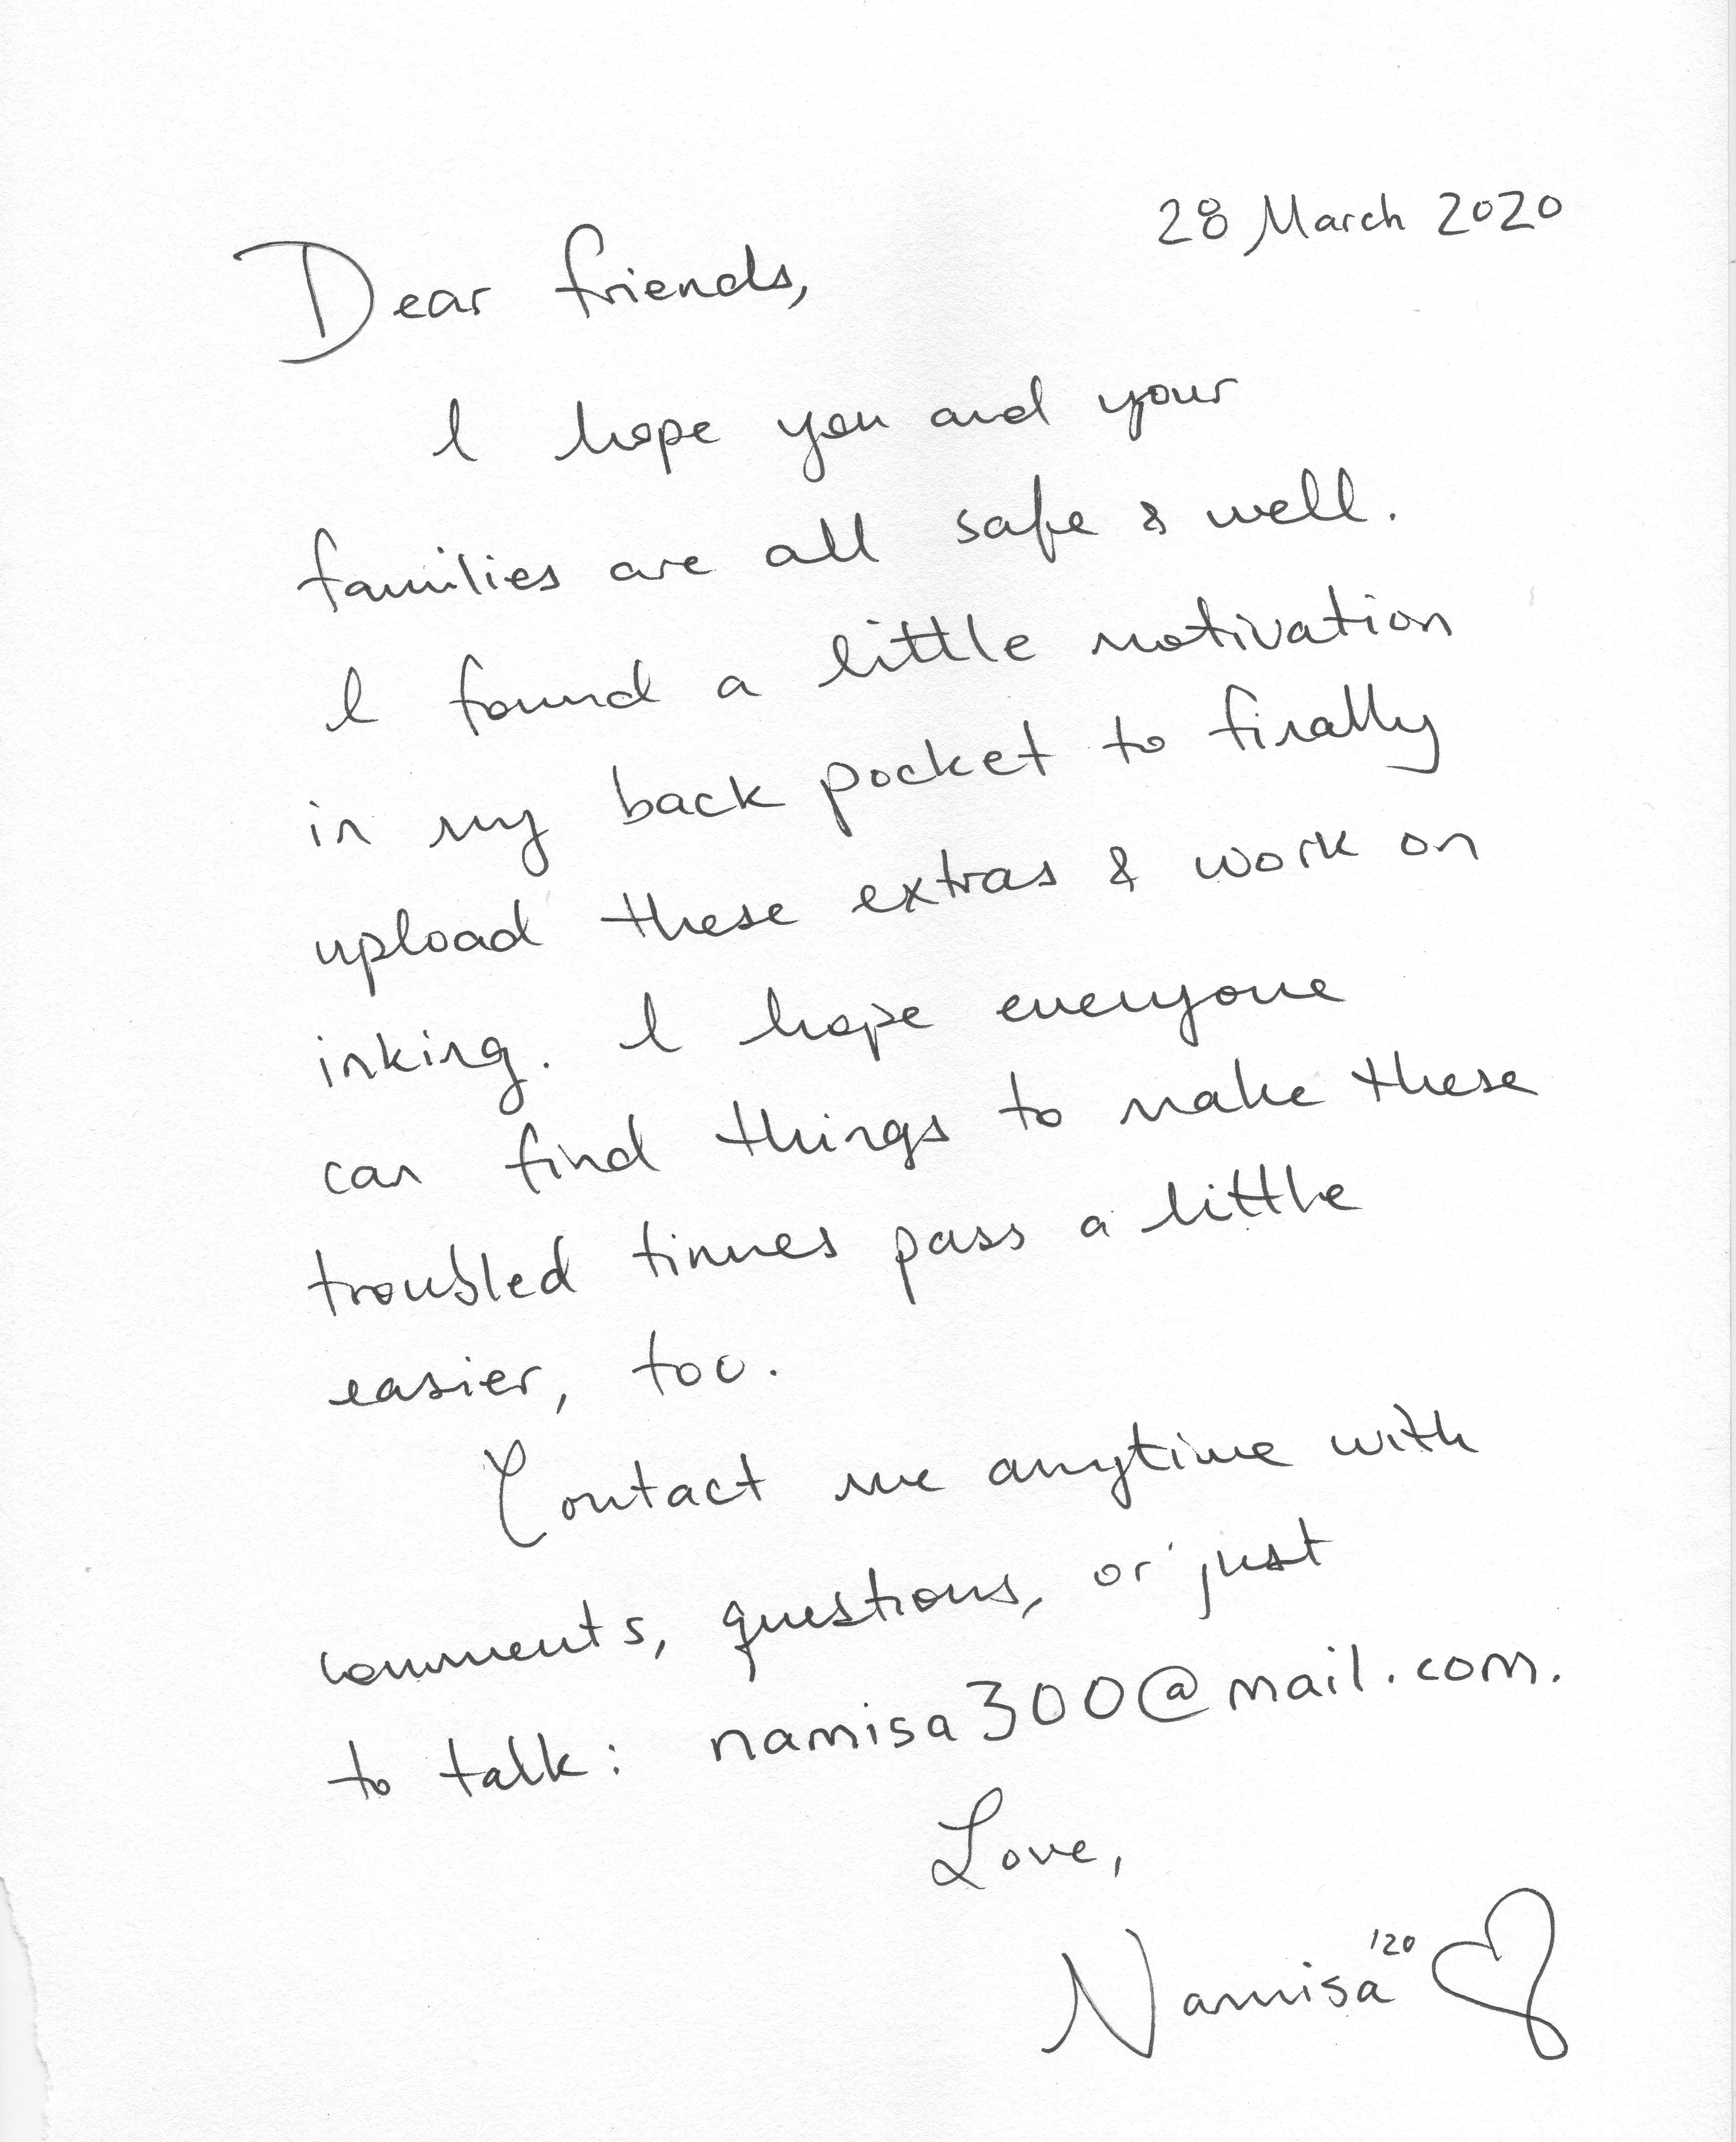 28 March 2020
Dear friends,
I hope you and your
families are all safe & well.
I found a little motivation
in my back pocket to finally
upload these extras & work on
inking. I hope everyone
can find things to make these
troubled times pass a little
easier, too.
Contact me anytime with
comments, questions, or just
to talk: namisa300@mail.com.
Love,
Namisa '20